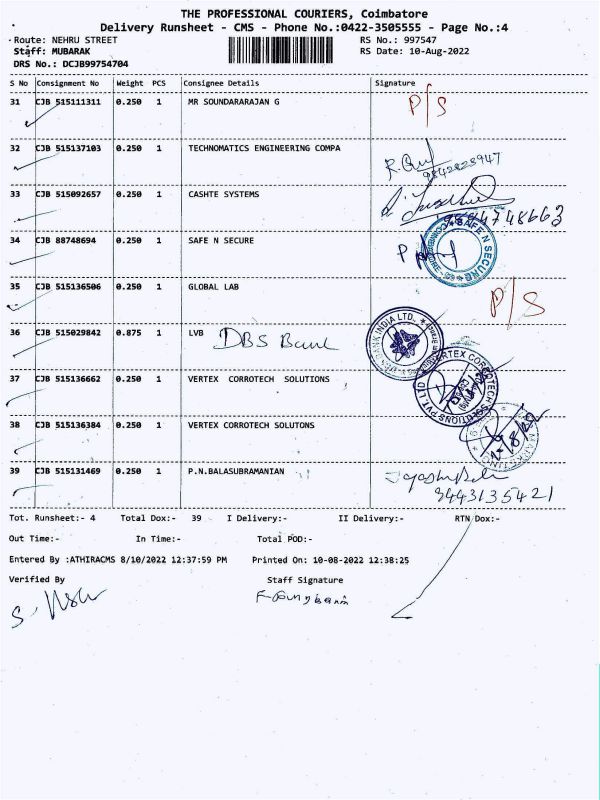 THE PROFESSIONAL COURIERS, Coimbatore
Delivery Runsheet - CMS - Phone No.:0422-3505555 - Page No.:4
Route: NEHRU STREET RS No.: 997547
Staff: MUBARAK RS Date: 10-Aug-2022
DRS No.: DCJB99754704
S No Consignment No Weight PCS Consignee Details Signature
31 CJB 515111311 0.250 1 MR SOUNDARARAJAN G P/S
32 CJB 515137103 0.250 1 TECHNOMATICS ENGINEERING COMPA
9842828947
33 CJB 515092657 0.250 1 CASHTE SYSTEMS
34 CJB 88748694 0.250 1 SAFE N SECURE
SAFE N SECURE
35 CJB 515136506 0.250 1 GLOBAL LAB P/S
36 CJB 515029842 0.875 1 LVB DBS Bank
BANK INDIA LTD.
37 CJB 515136662 0.250 1 VERTEX CORROTECH SOLUTIONS
VERTEX CORROTECH SOLUTIONS PVT LTD
38 CJB 515136384 0.250 1 VERTEX CORROTECH SOLUTONS
39 CJB 515131469 0.250 1 P.N.BALASUBRAMANIAN
9443135421
Tot. Runsheet:- 4 Total Dox:- 39 I Delivery:- II Delivery:- RTN Dox:-
Out Time:- In Time:- Total POD:-
Entered By :ATHIRACMS 8/10/2022 12:37:59 PM Printed On: 10-08-2022 12:38:25
Verified By Staff Signature